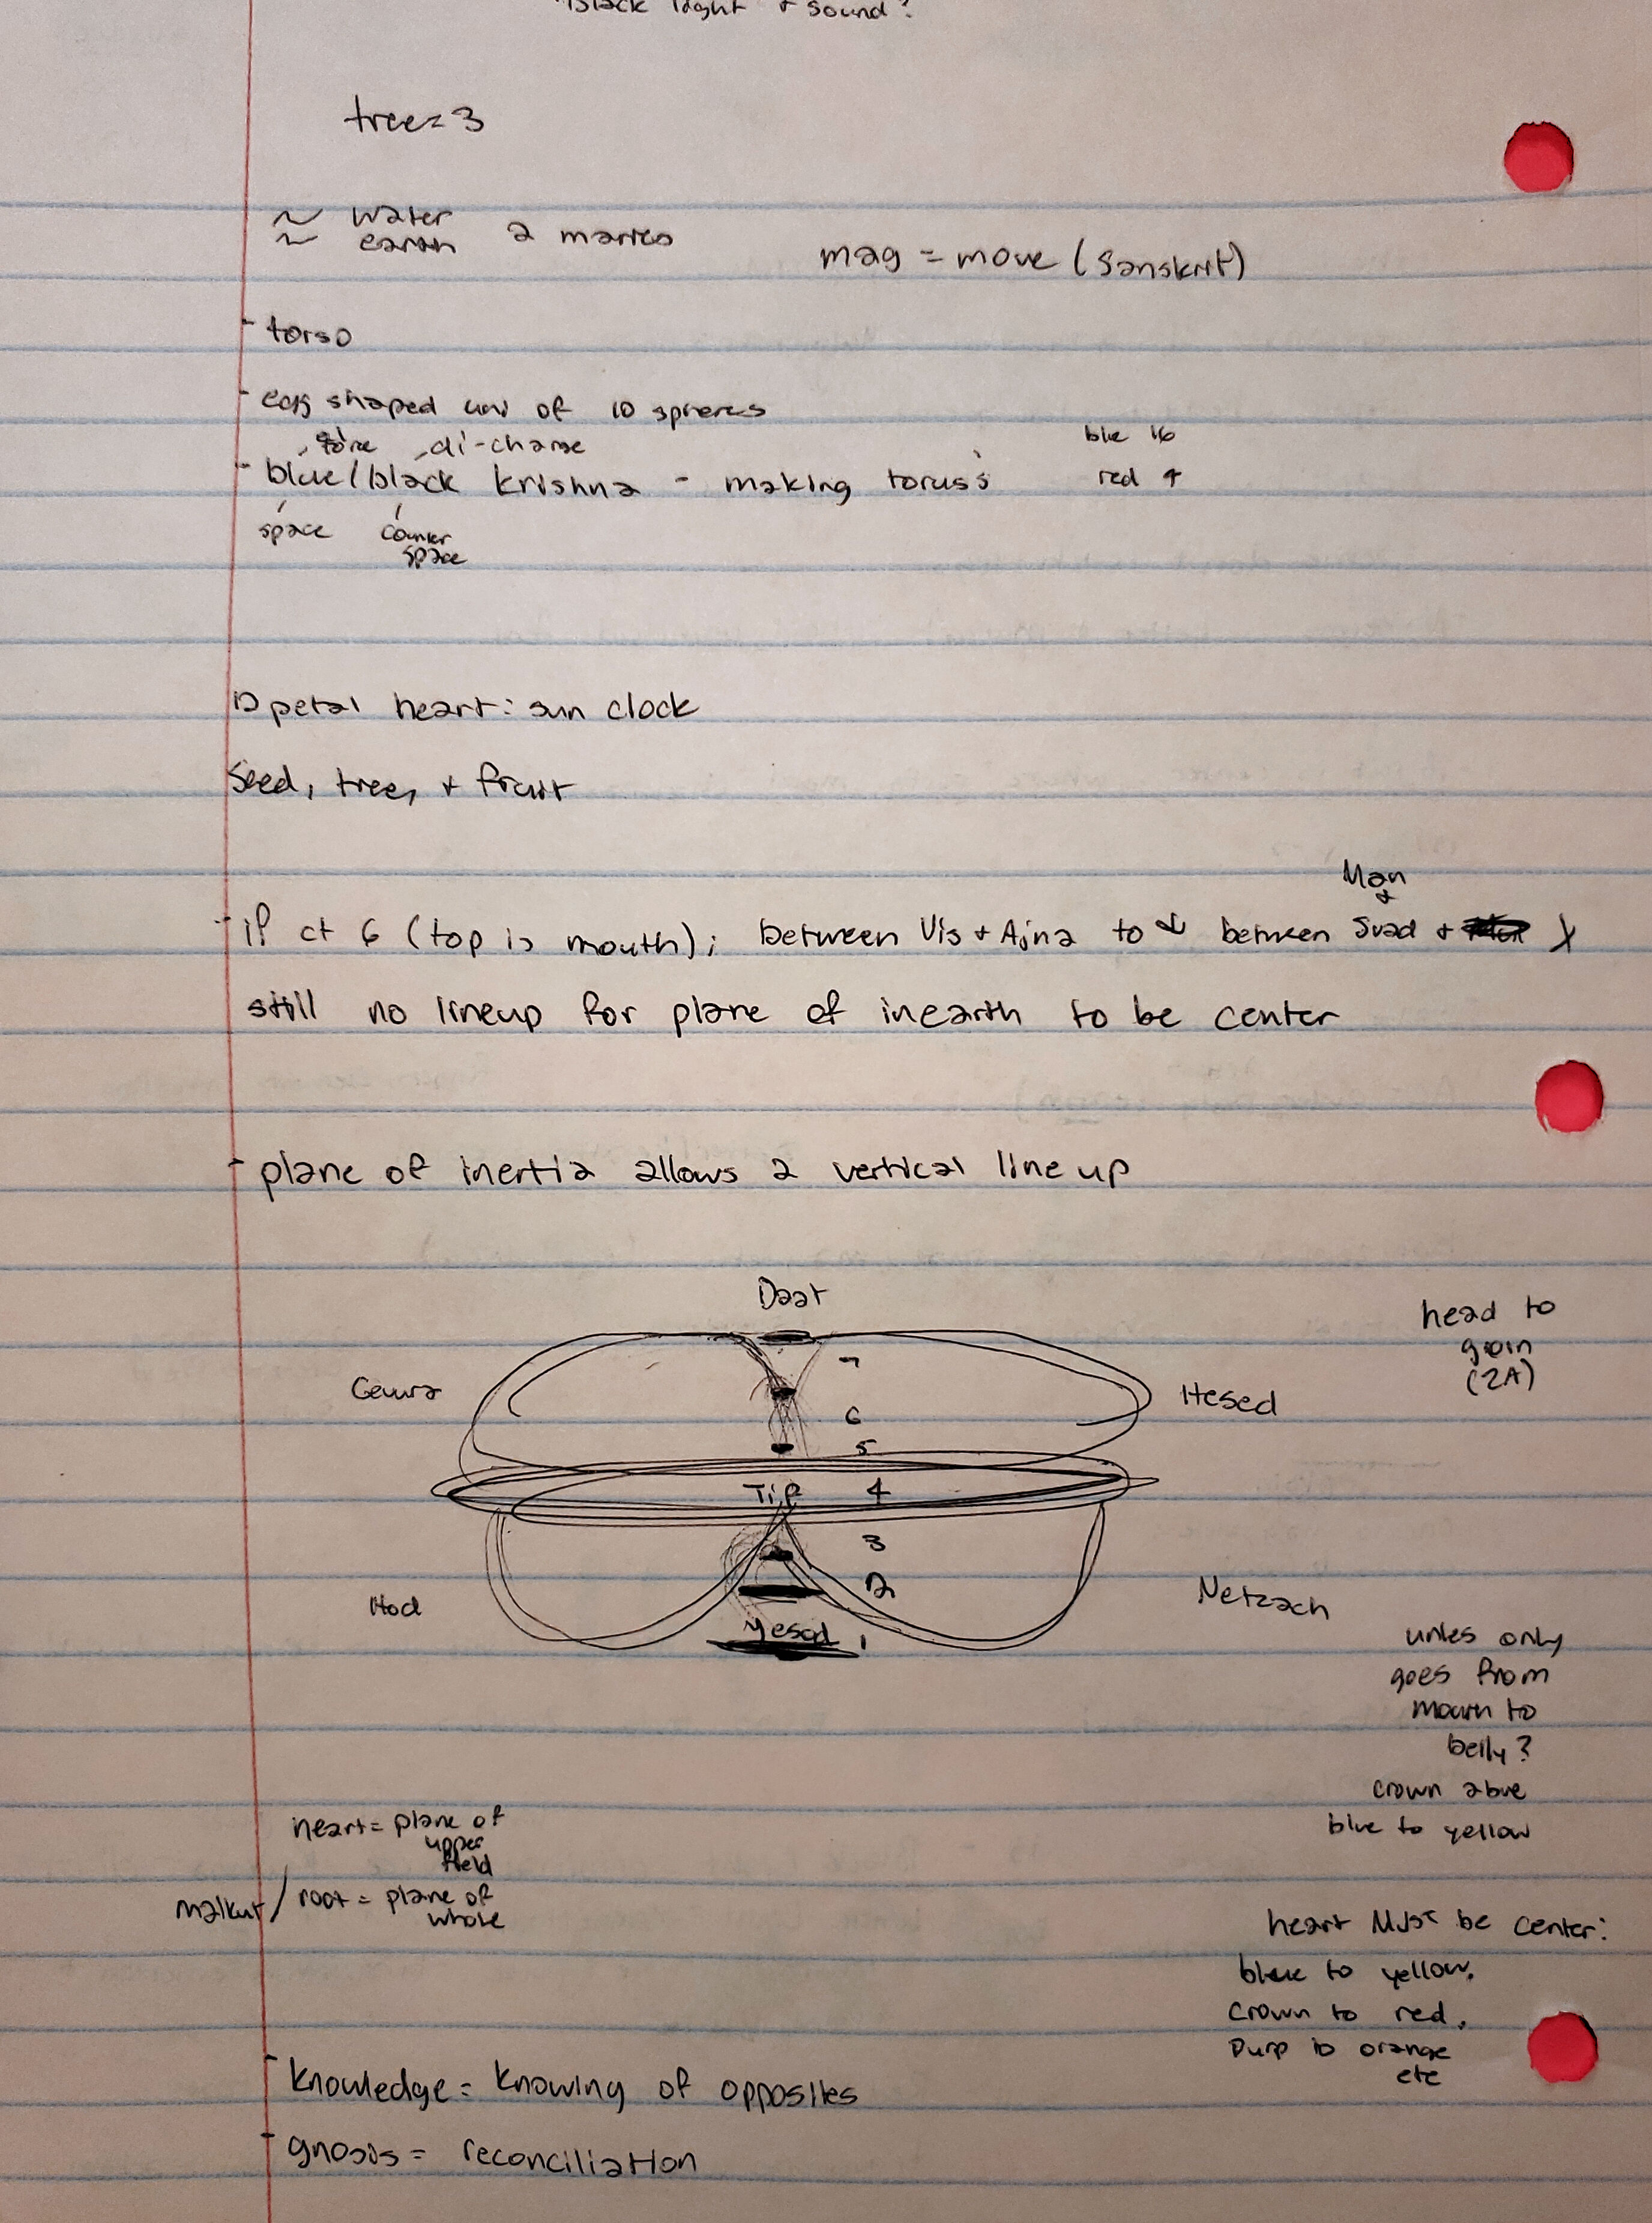 Black light + sound?
tree = 3
~ water
~ earth
mag = move (Sanskrit)
- torso
- egg shaped uni of 10 spheres
di-charge
- blue/black Krishna - making torus's
blue 16
red 4
space counter
space
12 petal heart: sun clock
Seed, tree, + fruit
Man
+
- if ct 6 (top is mouth); between Vis + Ajna to ↓ between Svad +
still no lineup for plane of inearth to be center
- plane of inertia allows 2 vertical line up
Daat
head to
groin
(2A)
7
Gevura
Hesed
6
5
Tif 4
3
2
Hod
Netzach
Yesod 1
unles only
goes from
mouth to
belly?
crown above
blue to yellow
heart = plane of
upper
field
malkut / root = plane of
whole
heart Must be center:
blue to yellow.
crown to red.
Purp to orange
etc
- knowledge = knowing of opposites
- gnosis = reconciliation